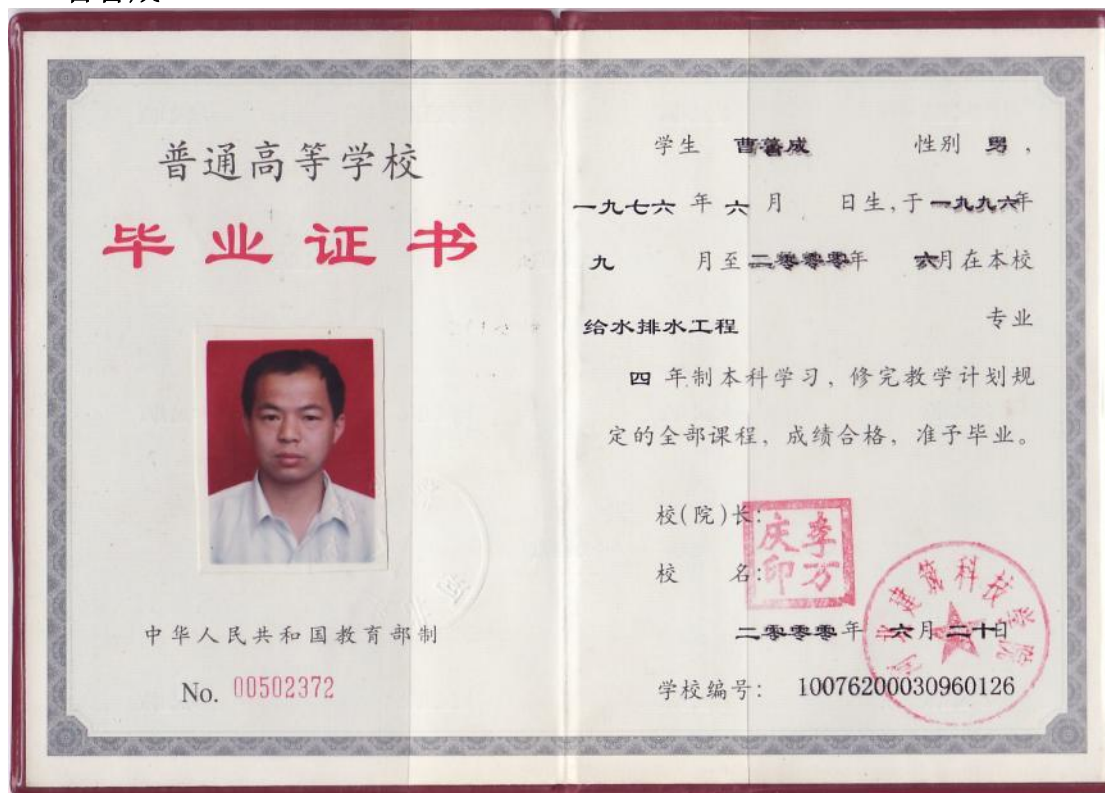 普通高等学校
毕业证书
中华人民共和国教育部制
No. 00502372
学生 曹 成 性别 男，
一九七六 年 六 月 日生，于 一九九六年
九 月至 二零零零年 六月在本校
给水排水工程 专业
四 年制本科学习，修完教学计划规
定的全部课程，成绩合格，准予毕业。
校(院)长：
李万庆印
校 名：
河北建筑科技学院
二零零零年 六月 二十日
学校编号： 10076200030960126